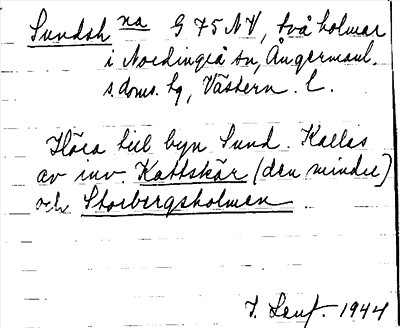 Sundshna G 75 NV, två holmar
i Nordingrå sn, Ångermanl.
s. doms. hg, Västern. l.
Höra till byn Sund. Kallas
av inv. Kattskär (den mindre)
och Storbergsholmen.
1944